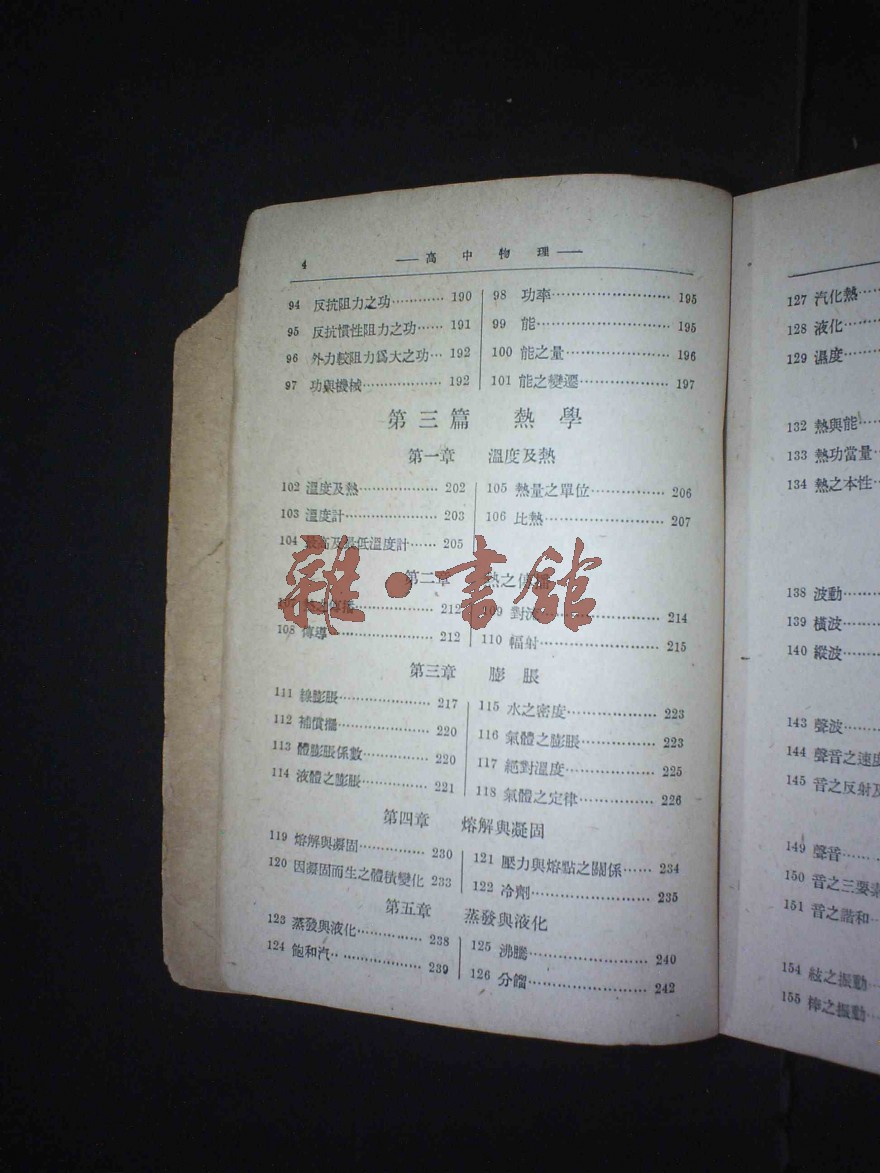 4 —高 中 物 理—
94 反抗阻力之功………… 190
95 反抗慣性阻力之功…… 191
96 外力較阻力爲大之功… 192
97 功與機械……………… 192
98 功率…………………… 195
99 能……………………… 195
100 能之量………………… 196
101 能之變遷……………… 197
第三篇 熱學
第一章 溫度及熱
102 溫度及熱……………… 202
103 溫度計………………… 203
104 最高及最低溫度計…… 205
105 熱量之單位…………… 206
106 比熱…………………… 207
雜·書館
第二章 熱之傳播
107 熱之傳播……………… 212
108 傳導…………………… 212
109 對流…………………… 214
110 輻射…………………… 215
第三章 膨脹
111 線膨脹………………… 217
112 補償擺………………… 220
113 體膨脹係數…………… 220
114 液體之膨脹…………… 221
115 水之密度……………… 223
116 氣體之膨脹…………… 223
117 絕對溫度……………… 225
118 氣體之定律…………… 226
第四章 熔解與凝固
119 熔解與凝固…………… 230
120 因凝固而生之體積變化 233
121 壓力與熔點之關係…… 234
122 冷劑…………………… 235
第五章 蒸發與液化
123 蒸發與液化…………… 238
124 飽和汽………………… 239
125 沸騰…………………… 240
126 分餾…………………… 242
127 汽化熱
128 液化
129 濕度
132 熱與能
133 熱功當量
134 熱之本性
138 波動
139 橫波
140 縱波
143 聲波
144 聲音之速度
145 音之反射及
149 聲音
150 音之三要素
151 音之諧和
154 絃之振動
155 棒之振動